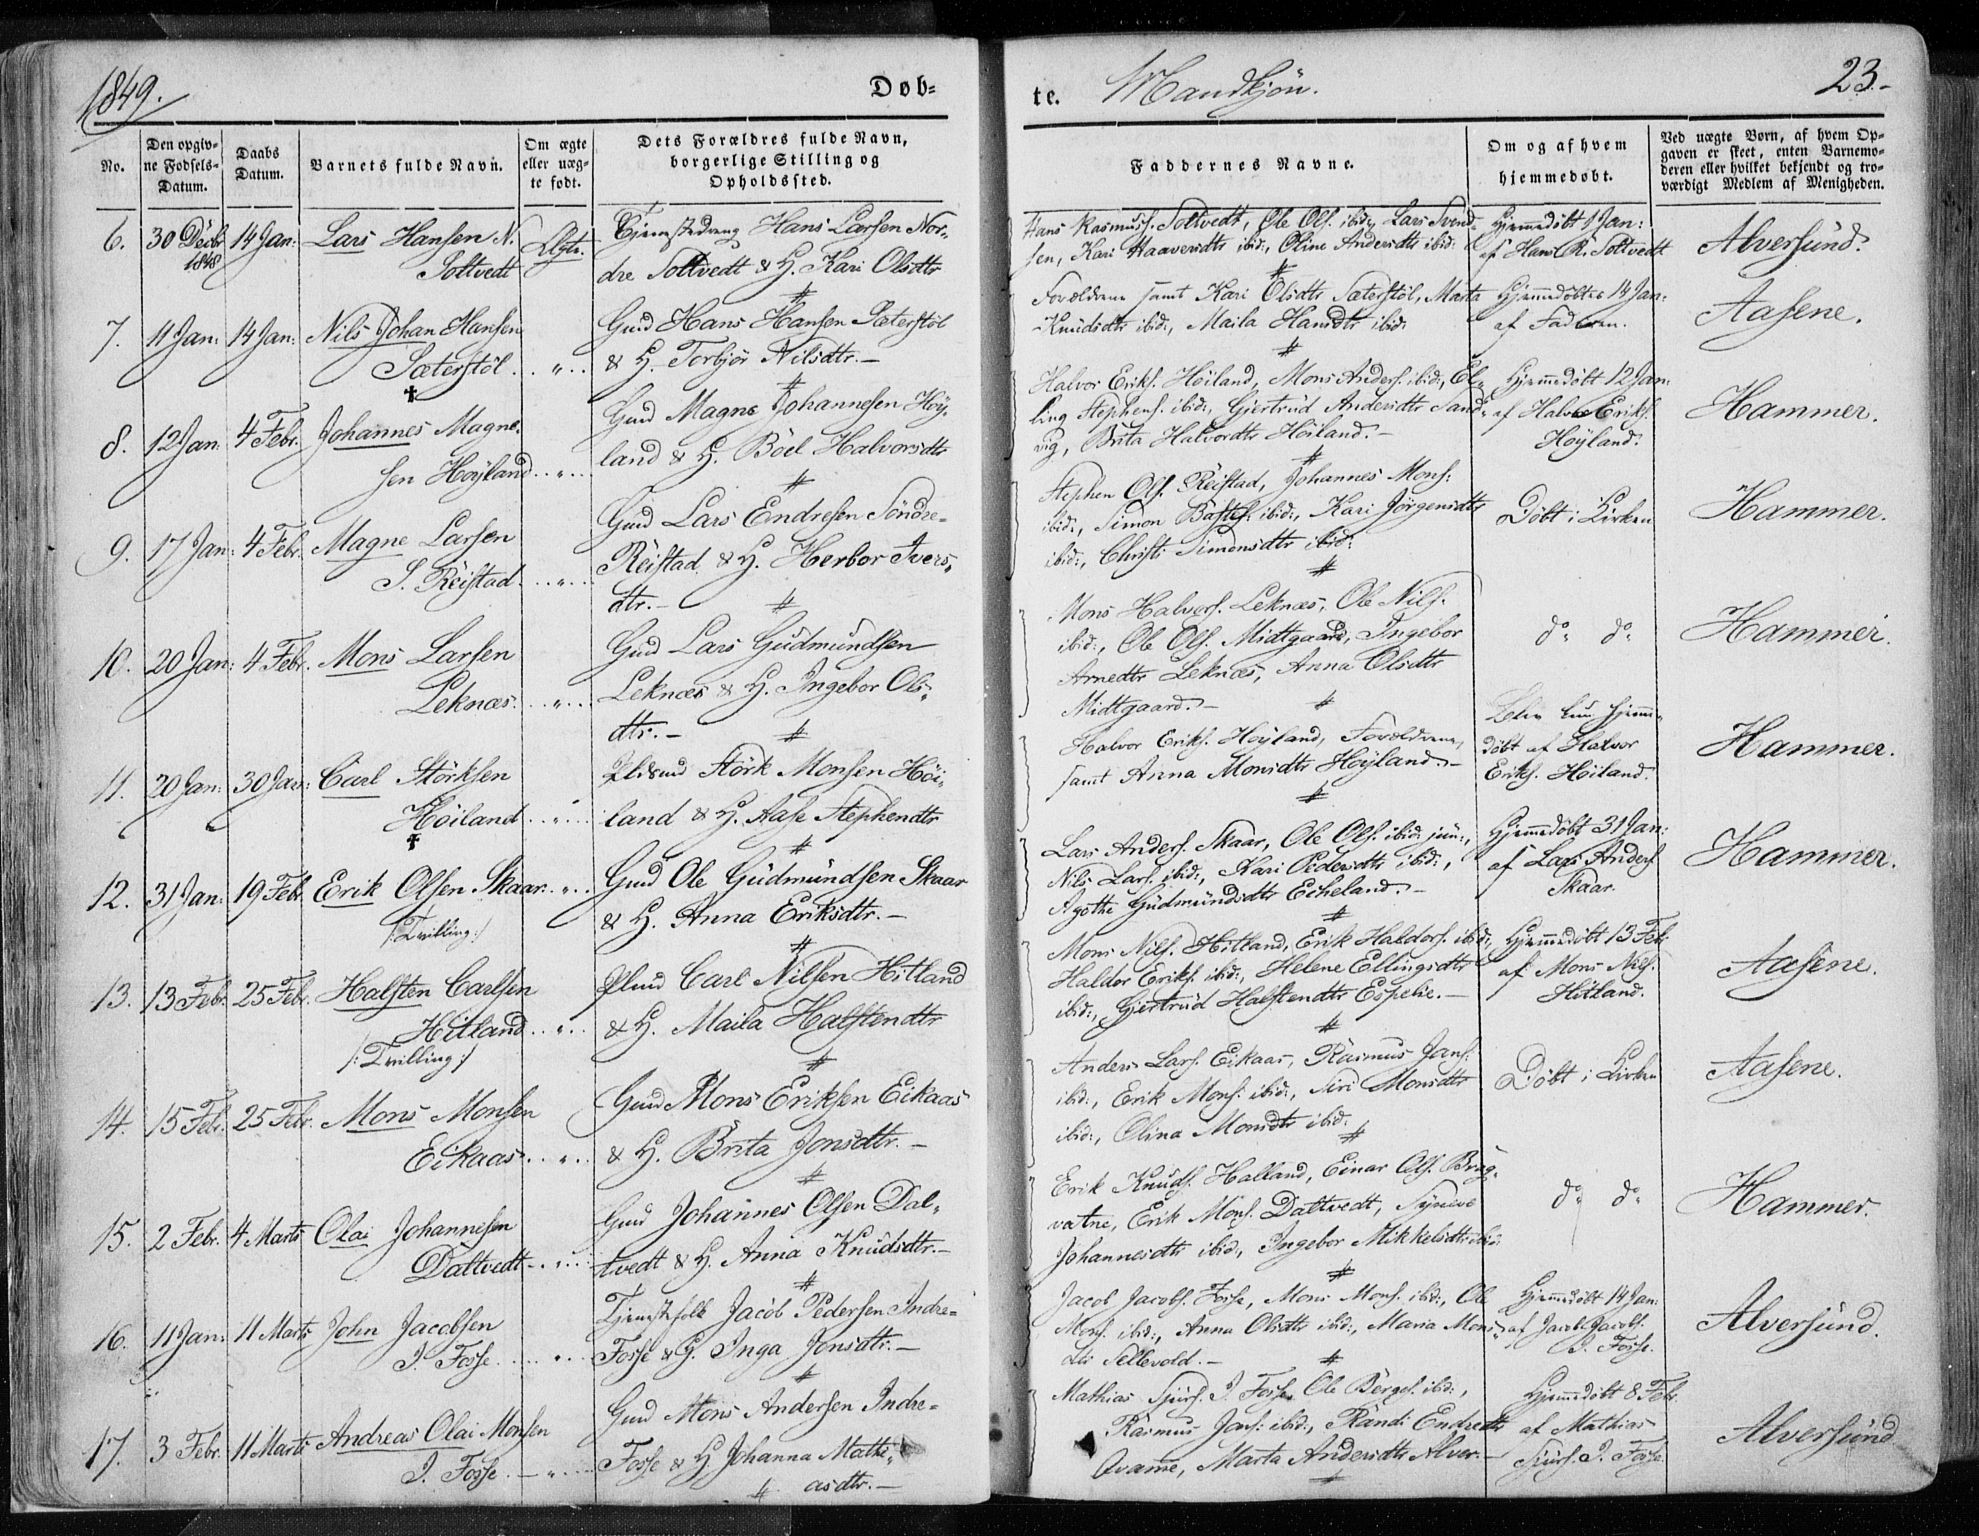 1849.
Døb-
te. Mandkjön.
23.-
No.
Den opgiv-
ne Fødsels-
Datum.
Daabs
Datum.
Barnets fulde Navn.
Om ægte
eller uæg-
te født.
Dets Forældres fulde Navn,
borgerlige Stilling og
Opholdssted.
Faddernes Navne.
Om og af hvem
hjemmedøbt.
Ved uægte Børn, af hvem Op-
gaven er skeet, enten Barnemo-
deren eller hvilket bekjendt og tro-
værdigt Medlem af Menigheden.
6. 30 Decbr 1848 14 Jan: Lars Hansen N.
Soltvedt
Hans Larsen Nor-
dre Soltvedt & H. Kari Olsdtr
Hans Rasmuss. Soltvedt, Ole Ols. ibid:, Lars Svend-
sen, Kari Haaversdtr ibid:, Oline Andersdtr ibid:
Hjemmedöbt 1 Jan:
af Hans R. Soltvedt
Alversund.
7. 11 Jan: 14 Jan: Nils Johan Hansen
Sæterstöl
Gmd Hans Hansen Sæterstöl
& H. Torbjör Nilsdtr.-
Forældrene samt Kari Olsdtr Sæterstöl, Marta
Knudsdtr ibid:, Maila Hansdtr ibid:
Hjemmedöbtes 14 Jan:
af Faderen.
Aasene.
8. 12 Jan: 4 Febr. Johannes Magne-
sen Høyland
Gmd Magne Johannesen Høy-
land & H. Böel Halvorsdtr
Halvor Eriks. Höiland, Mons Anders. ibid:, El-
ling Stephens. ibid:, Gjertrud Andersdtr Sand-
vig, Brita Halvordtr Höiland.-
Hjemmedöbt 12 Jan:
af Halvor Eriks.
Höyland.
Hammer.
9. 17 Jan: 4 Febr. Magne Larsen
S. Reistad
Gmd Lars Endresen Söndre-
Reistad & H. Herbor Ivers-
dtr.-
Stephen Ols. Reistad, Johannes Mons:
ibid:, Simon ibid:, Kari Jörgensdtr
ibid:, Christi Simonsdtr ibid:
Döbt i Kirken
Hammer.
10. 20 Jan: 4 Febr. Mons Larsen
Leknæs
Gmd Lars Gudmundsen
Leknæs & H. Ingebor Ols-
dtr.-
Mons Halvors. Leknæs, Ole Nils.
ibid:, Ole Ols. Midtgaard, Ingebor
Arnedtr Leknæs, Anna Olsdtr
Midtgaard.-
do do
Hammer.
11. 20 Jan: 30 Jan: Carl Störksen
Höiland
Störk Monsen Höi-
land & H. Aase Stephendtr
Halvor Eriks. Høyland, Forældrene,
samt Anna Monsdtr Höyland.-
Blev kun hjemme-
döbt af Halvor
Eriks. Höiland.
Hammer.
12. 31 Jan: 19 Febr. Erik Olsen Skaar
/:Tvilling:/
Gmd Ole Gudmundsen Skaar
& H. Anna Eriksdtr.-
Lars Anders. Skaar, Ole Ols. ibid: jun:,
Nils Lars. ibid:, Kari Pedersdtr ibid:,
Agothe Gudmundsdtr Echeland.-
Hjemmedöbt 31 Jan:
af Lars Anders.
Skaar.
Hammer.
13. 13 Febr. 25 Febr. Halsten Carlsen
Hitland
/:Tvilling:/
Carl Nilsen Hitland
& H. Maila Halstendtr
Mons Nils. Hitland, Erik Haldors. ibid:,
Haldor Eriks. ibid:, Helene Ellingsdtr
ibid:, Gjertrud Halstendtr Espelie.-
Hjemmedöbt 13 Feb:
af Mons Nils.
Hitland.
Aasene.
14. 15 Febr. 25 Febr. Mons Monsen
Eikaas
Gmd Mons Eriksen Eikaas
& H. Brita Jonsdtr.-
Anders Lars. Eikaas, Rasmus Jons:
ibid:, Erik Mons. ibid:, Siri Monsdtr
ibid:, Olina Monsdtr ibid:
Döbt i Kirken
Aasene.
15. 2 Febr. 4 Marts Olai Johannesen
Daltvedt
Gmd Johannes Olsen Dal-
tvedt & H. Anna Knudsdtr.-
Erik Knuds. Halland, Einar Ols. Brag-
vatne, Erik Mons. Daltvedt, Syneve
Johannesdtr ibid:, Ingebor Mikkelsdtr ibid:
do do
Hammer.
16. 11 Jan: 11 Marts John Jacobsen
I. Fosse
Tjenestfolk Jacob Pedersen Indre-
Fosse & H. Inga Jonsdtr.-
Jacob Jacobs. Fosse, Mons Mons. ibid:, Ole
Mons. ibid:, Anna Olsdtr ibid:, Maria Mons-
dtr Sellevold.-
Hjemmedöbt 14 Jan:
af Jacob Jacobs.
I. Fosse.
Alversund.
17. 3 Febr. 11 Marts Andreas Olai Monsen
I. Fosse
Gmd Mons Andersen Indre-
Fosse & H. Johanna Mathi-
asdtr.-
Mathias Sjurs. I. Fosse, Ole Börges. ibid:,
Rasmus Jans: ibid:, Randi Endredtr
Qvamme, Marta Andersdtr Alver.-
Hjemmedöbt 8 Febr.
af Mathias
Sjurs. I. Fosse.
Alversund